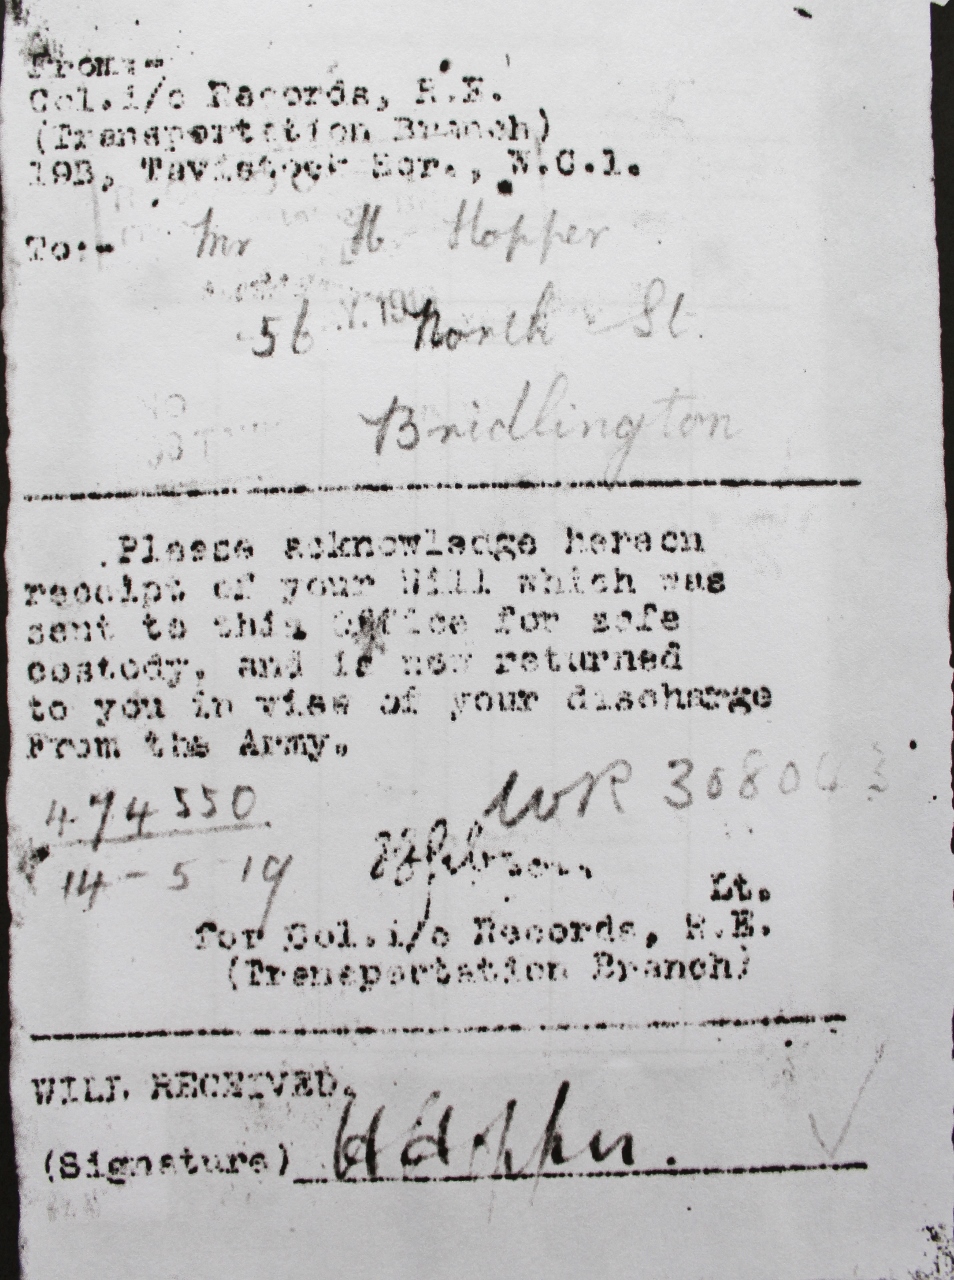 From:-
Col.i/c Records, R.E.
(Transportation Branch)
19B, Tavistock Sqr., W.C.1.
To:- Mr H Hopper
56 North St.
Bridlington
Please acknowledge hereon
receipt of your Will which was
sent to this Office for safe
custody, and is now returned
to you in view of your discharge
From the Army.
WR 308043
474550
14-5-19
Lt.
for Col.i/c Records, R.E.
(Transportation Branch)
WILL RECEIVED.
(Signature) H Hopper.